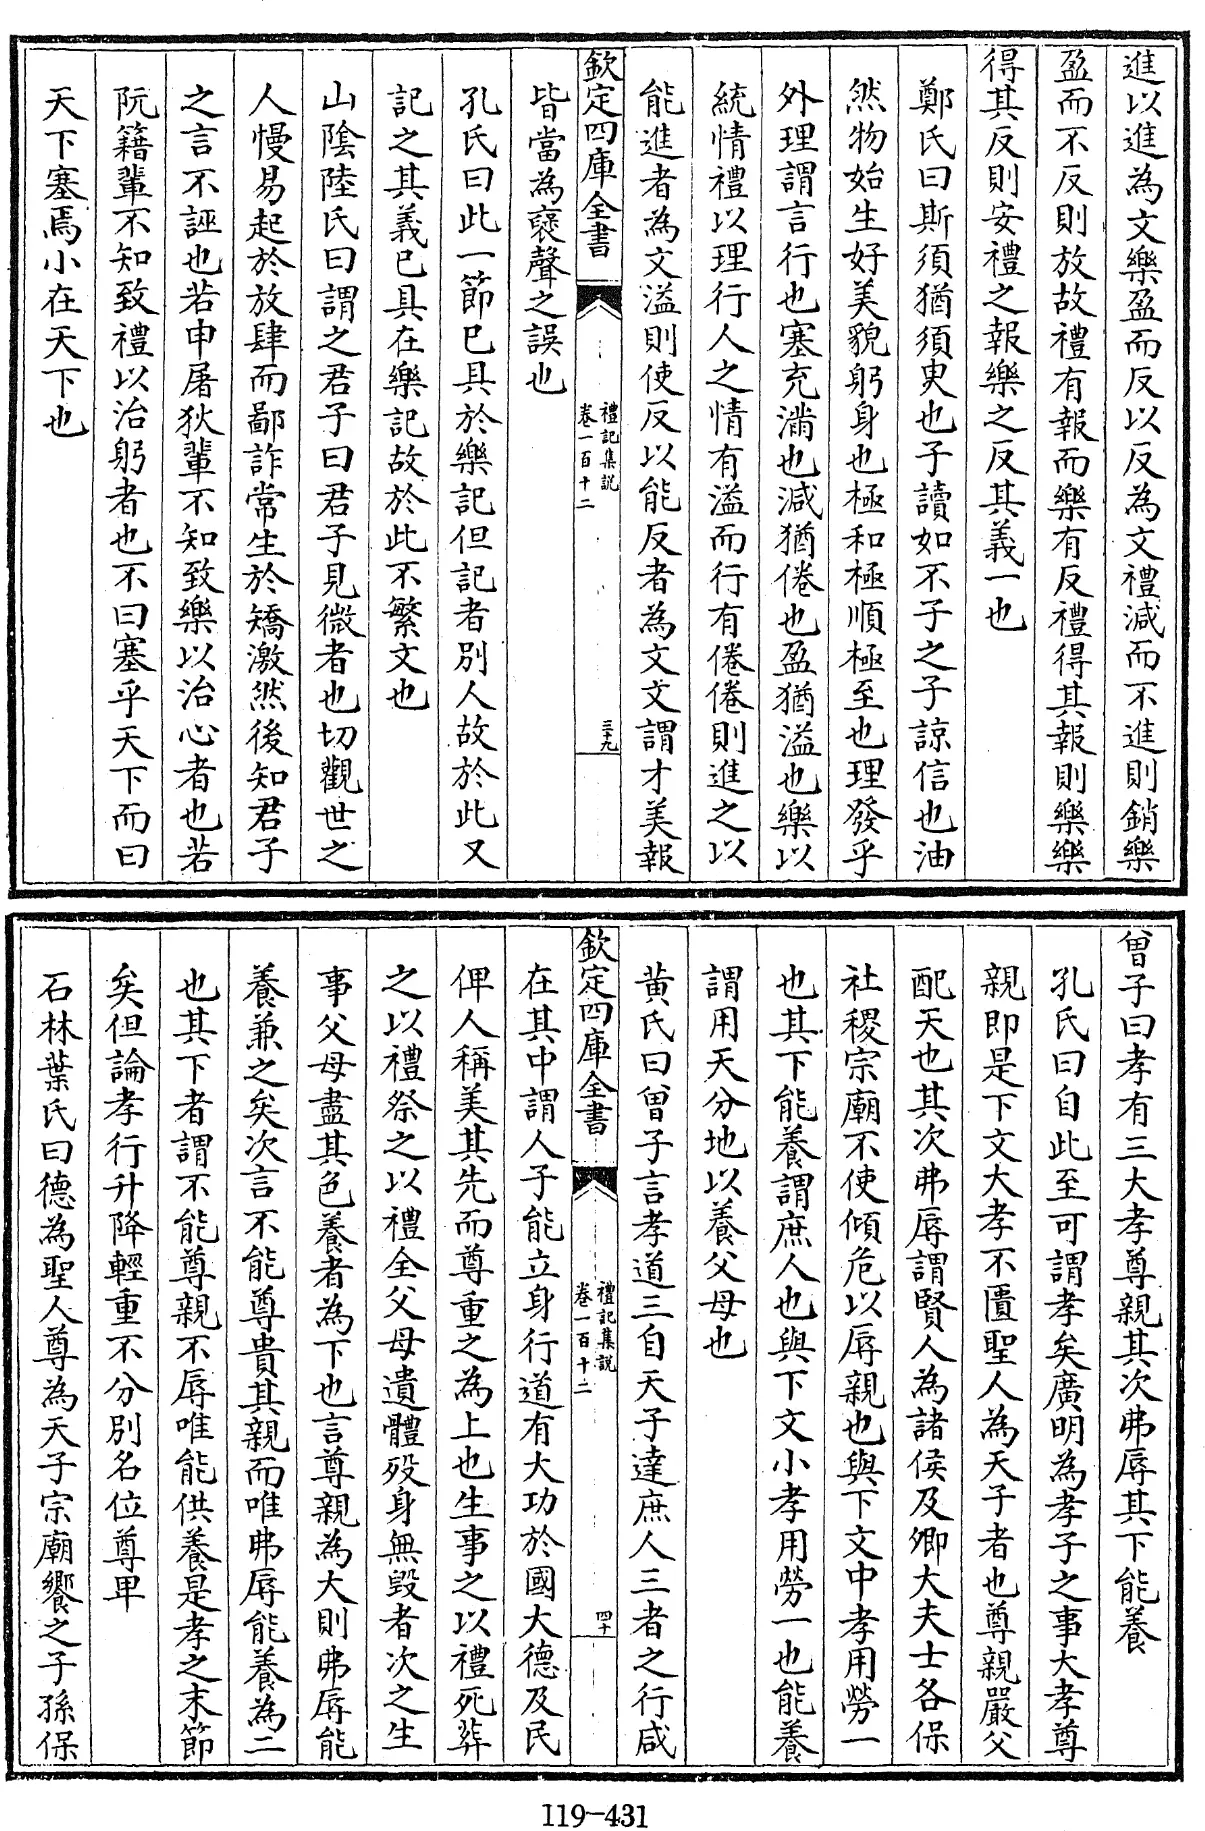 進以進為文樂盈而反以反為文禮減而不進則銷樂
盈而不反則放故禮有報而樂有反禮得其報則樂樂
得其反則安禮之報樂之反其義一也
鄭氏曰斯須猶須臾也子讀如不子之子諒信也油
然物始生好美貌躬身也極和極順極至也理發乎
外理謂言行也塞充滿也減猶倦也盈猶溢也樂以
統情禮以理行人之情有溢而行有倦倦則進之以
能進者為文溢則使反以能反者為文文謂才美報
欽定四庫全書
禮記集説
卷一百十二
三十九
皆當為襃聲之誤也
孔氏曰此一節已具於樂記但記者別人故於此又
記之其義已具在樂記故於此不繁文也
山陰陸氏曰謂之君子曰君子見微者也切觀世之
人慢易起於放肆而鄙詐常生於矯激然後知君子
之言不誣也若申屠狄輩不知致樂以治心者也若
阮籍輩不知致禮以治躬者也不曰塞乎天下而曰
天下塞焉小在天下也
曽子曰孝有三大孝尊親其次弗辱其下能養
孔氏曰自此至可謂孝矣廣明為孝子之事大孝尊
親即是下文大孝不匱聖人為天子者也尊親嚴父
配天也其次弗辱謂賢人為諸侯及卿大夫士各保
社稷宗廟不使傾危以辱親也與下文中孝用勞一
也其下能養謂庶人也與下文小孝用勞一也能養
謂用天分地以養父母也
黄氏曰曽子言孝道三自天子達庶人三者之行咸
欽定四庫全書
禮記集説
卷一百十二
四十
在其中謂人子能立身行道有大功於國大德及民
俾人稱美其先而尊重之為上也生事之以禮死葬
之以禮祭之以禮全父母遺體殁身無毀者次之生
事父母盡其色養者為下也言尊親為大則弗辱能
養兼之矣次言不能尊貴其親而唯弗辱能養為二
也其下者謂不能尊親不辱唯能供養是孝之末節
矣但論孝行升降輕重不分別名位尊卑
石林葉氏曰德為聖人尊為天子宗廟饗之子孫保
119-431